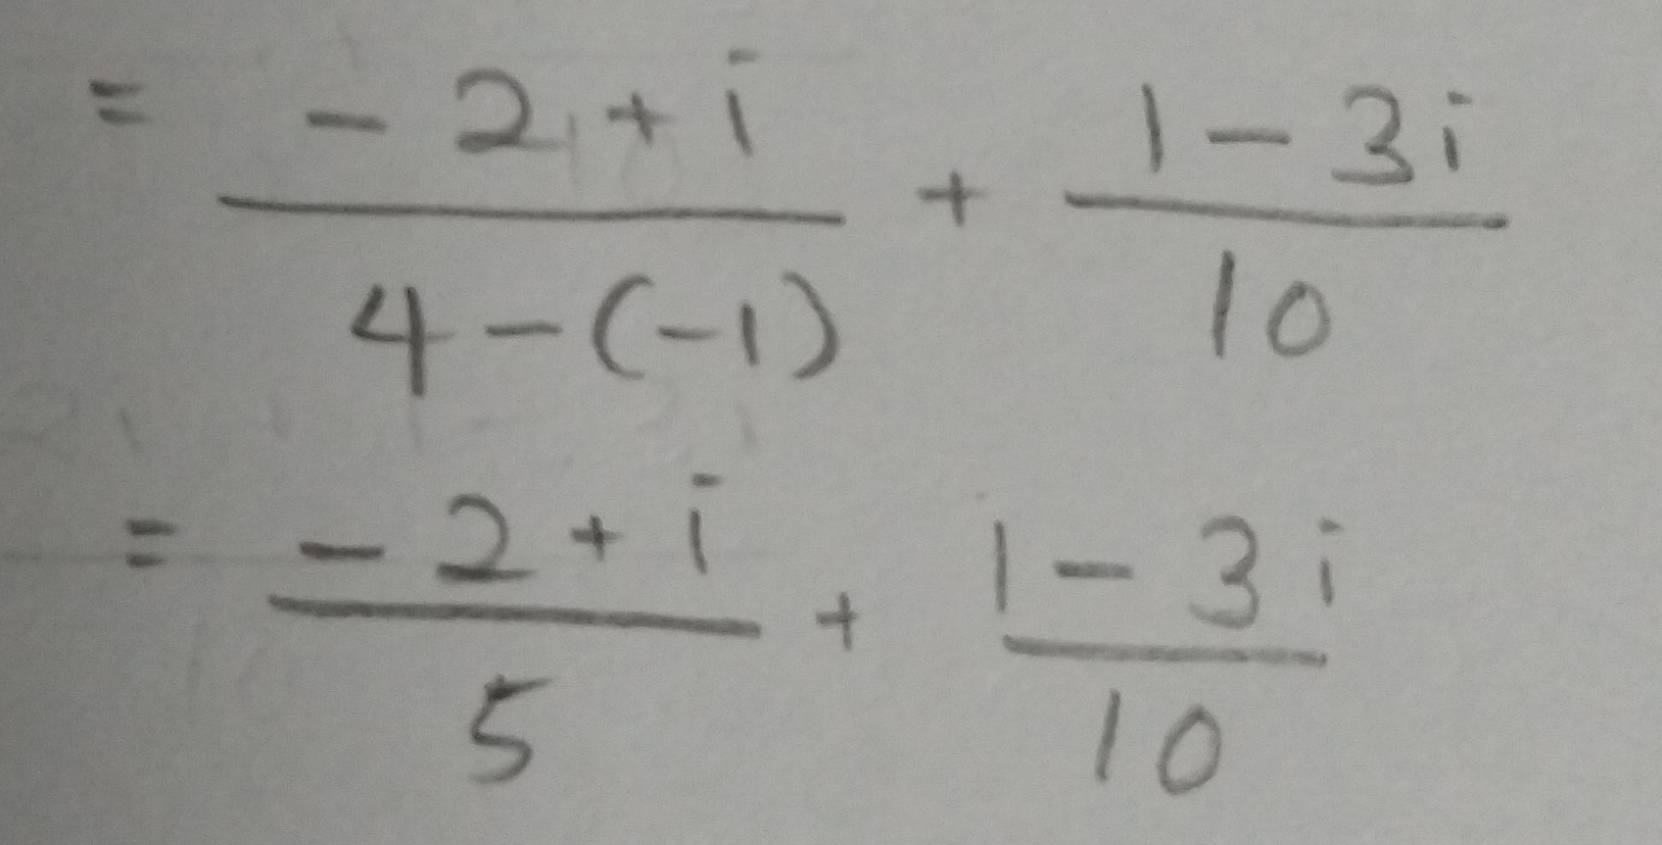 = \frac{-2+i}{4-(-1)} + \frac{1-3i}{10}
= \frac{-2+i}{5} + \frac{1-3i}{10}